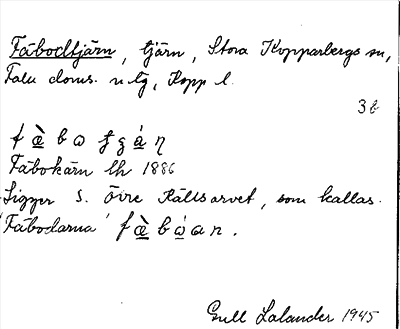 Fäbodtjärn, tjärn, Stora Kopparbergs sn,
Falu doms. utg, Kopp l.
3b
f æ̀ b ω f g á η
Fäbokärn lk 1886
Ligger S. Övre Källsarvet, som kallas
'Fäbodarna' f æ̀ b ω̣ a n.
Gull Lalander 1945